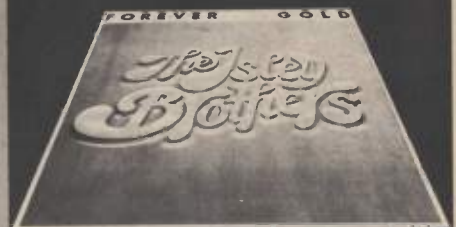 FOREVER GOLD
The Isley
Brothers